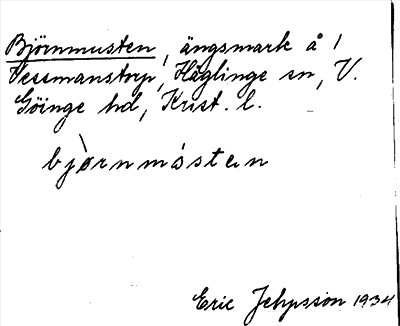 Björnmusten, ängsmark å 1
Vessmanstorp, Häglinge sn, V.
Göinge hd, Krist. l.
bjòrnmóstεn
Eric Jehpsson 1934